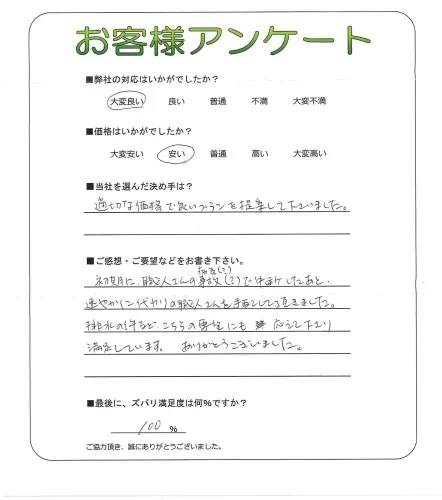 お客様アンケート
■弊社の対応はいかがでしたか?
大変良い 良い 普通 不満 大変不満
■価格はいかがでしたか?
大変安い 安い 普通 高い 大変高い
■当社を選んだ決め手は?
適切な価格で良いプランを提案して下さいました。
■ご感想・ご要望などをお書き下さい。
初期に、職人さんの事故(?)で中断したあと、
速やかに代わりの職人さんを手配して頂きました。
排水の件など、こちらの要望にも応えて下さり
満足しています。ありがとうございました。
■最後に、ズバリ満足度は何%ですか?
100 %
ご協力頂き、誠にありがとうございました。